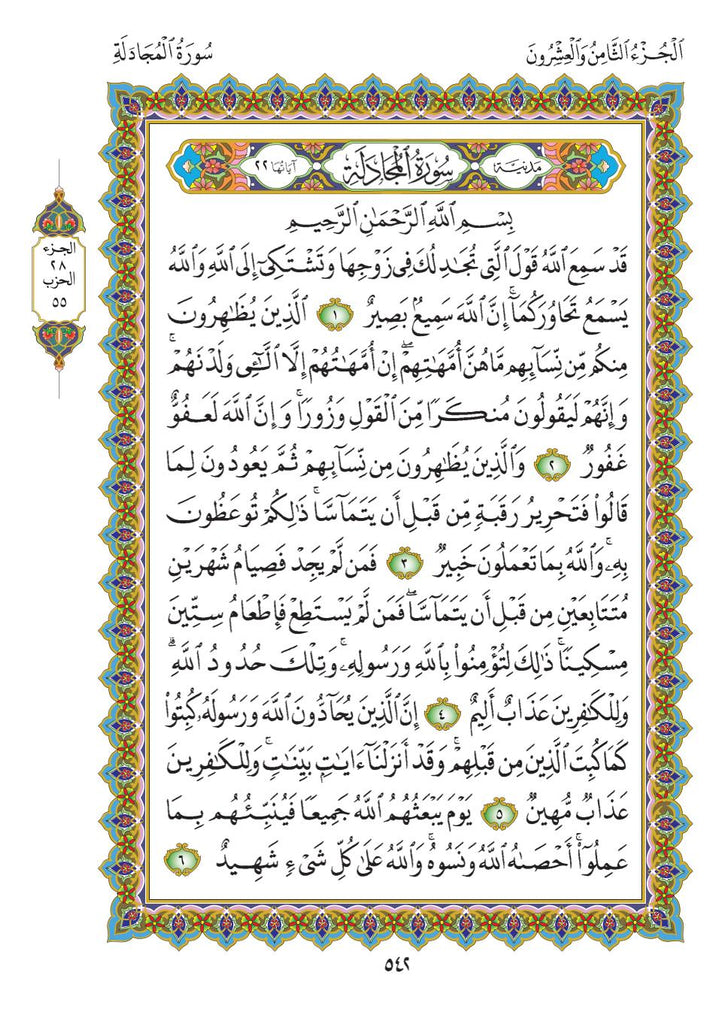 الجُزْءُ الثَّامِنُ وَالْعِشْرُونَ
سُورَةُ الْمُجَادَلَةِ
مَدنيّة
سُورَةُ المُجَادلَةِ
آيَاتُهَا ٢٢
بِسْمِ ٱللَّهِ ٱلرَّحْمَٰنِ ٱلرَّحِيمِ
قَدْ سَمِعَ ٱللَّهُ قَوْلَ ٱلَّتِى تُجَٰدِلُكَ فِى زَوْجِهَا وَتَشْتَكِىٓ إِلَى ٱللَّهِ وَٱللَّهُ
يَسْمَعُ تَحَاوُرَكُمَآ ۚ إِنَّ ٱللَّهَ سَمِيعٌۢ بَصِيرٌ ١ ٱلَّذِينَ يُظَٰهِرُونَ
مِنكُم مِّن نِّسَآئِهِم مَّا هُنَّ أُمَّهَٰتِهِمْ ۖ إِنْ أُمَّهَٰتُهُمْ إِلَّا ٱلَّٰٓـِٔى وَلَدْنَهُمْ ۚ
وَإِنَّهُمْ لَيَقُولُونَ مُنكَرًا مِّنَ ٱلْقَوْلِ وَزُورًا ۚ وَإِنَّ ٱللَّهَ لَعَفُوٌّ
غَفُورٌ ٢ وَٱلَّذِينَ يُظَٰهِرُونَ مِن نِّسَآئِهِمْ ثُمَّ يَعُودُونَ لِمَا
قَالُوا۟ فَتَحْرِيرُ رَقَبَةٍ مِّن قَبْلِ أَن يَتَمَآسَّا ۚ ذَٰلِكُمْ تُوعَظُونَ
بِهِۦ ۚ وَٱللَّهُ بِمَا تَعْمَلُونَ خَبِيرٌ ٣ فَمَن لَّمْ يَجِدْ فَصِيَامُ شَهْرَيْنِ
مُتَتَابِعَيْنِ مِن قَبْلِ أَن يَتَمَآسَّا ۖ فَمَن لَّمْ يَسْتَطِعْ فَإِطْعَامُ سِتِّينَ
مِسْكِينًا ۚ ذَٰلِكَ لِتُؤْمِنُوا۟ بِٱللَّهِ وَرَسُولِهِۦ ۚ وَتِلْكَ حُدُودُ ٱللَّهِ ۗ
وَلِلْكَٰفِرِينَ عَذَابٌ أَلِيمٌ ٤ إِنَّ ٱلَّذِينَ يُحَآدُّونَ ٱللَّهَ وَرَسُولَهُۥ كُبِتُوا۟
كَمَا كُبِتَ ٱلَّذِينَ مِن قَبْلِهِمْ ۚ وَقَدْ أَنزَلْنَآ ءَايَٰتٍۭ بَيِّنَٰتٍ ۚ وَلِلْكَٰفِرِينَ
عَذَابٌ مُّهِينٌ ٥ يَوْمَ يَبْعَثُهُمُ ٱللَّهُ جَمِيعًا فَيُنَبِّئُهُم بِمَا
عَمِلُوٓا۟ ۚ أَحْصَىٰهُ ٱللَّهُ وَنَسُوهُ ۚ وَٱللَّهُ عَلَىٰ كُلِّ شَىْءٍ شَهِيدٌ ٦
الجزء
٢٨
الحزب
٥٥
٥٤٢